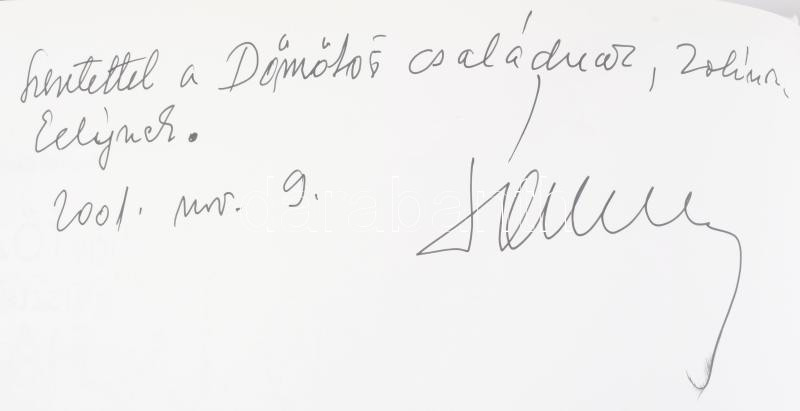 Szeretettel a Dömötör családnak, Zolinak,
2001. nov. 9.
darabanth